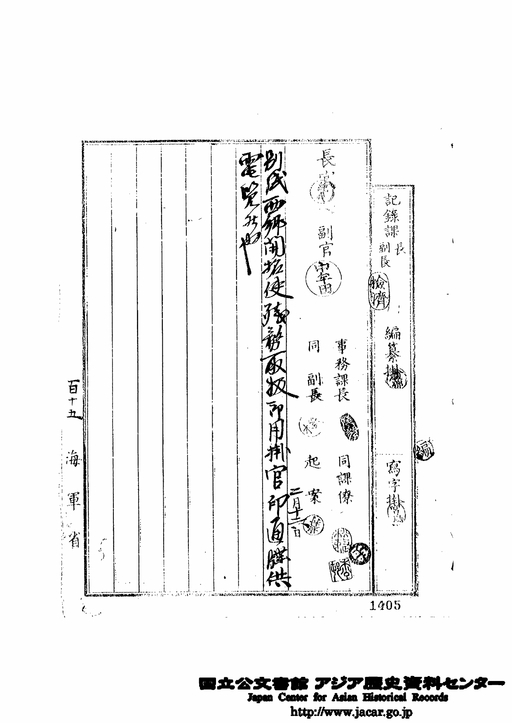 記錄課
長
副長
檢濟
編纂掛
寫字掛
長官
副官
事務課長
同課僚
同副長
起案
二月十二日
別紙西鄉開拓使殘務取扱御用掛官印通牒供
電覽候也
百十五
海軍省
1405
国立公文書館 アジア歴史資料センター
Japan Center for Asian Historical Records
http://www.jacar.go.jp